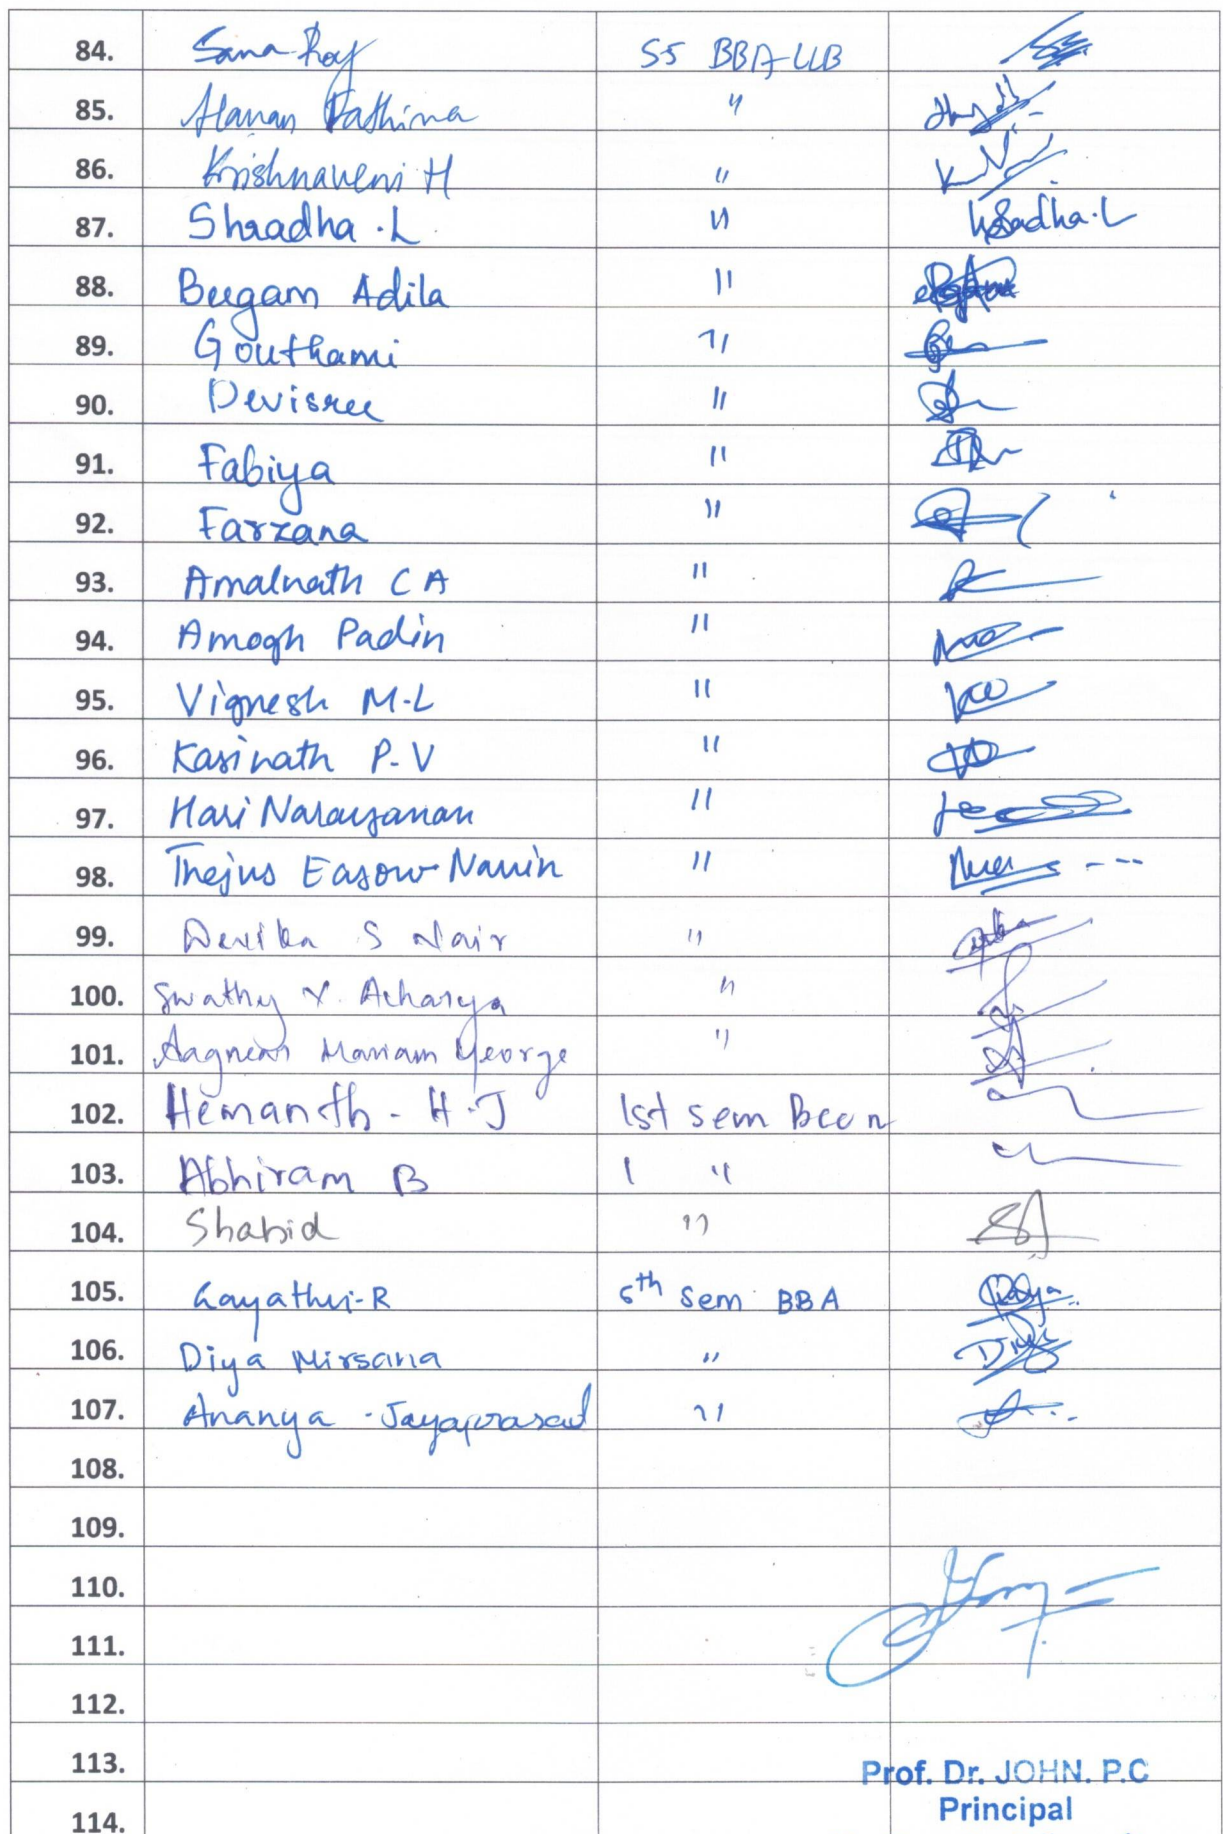 84. Sana Roy S5 BBA-LLB
85. Hanan Fathima "
86. Krishnaveni H "
87. Shraadha .L " Sadha.L
88. Beegam Adila "
89. Gouthami "
90. Devisree "
91. Fabiya "
92. Farzana "
93. Amalnath C A "
94. Amogh Padin "
95. Vignesh M.L "
96. Kasinath P.V "
97. Hari Narayanan "
98. Thejus Easow Navin "
99. Devika S Nair "
100. Swathy Y. Acharya "
101. Mariam George "
102. Hemanth - H.J 1st sem Bcom
103. Abhiram B 1 "
104. Shahid "
105. Gayathri-R 5th Sem BBA
106. Diya Mirsana "
107. Ananya .Jayaprasad "
108.
109.
110.
111.
112.
113. Prof. Dr. JOHN. P.C
Principal
114.